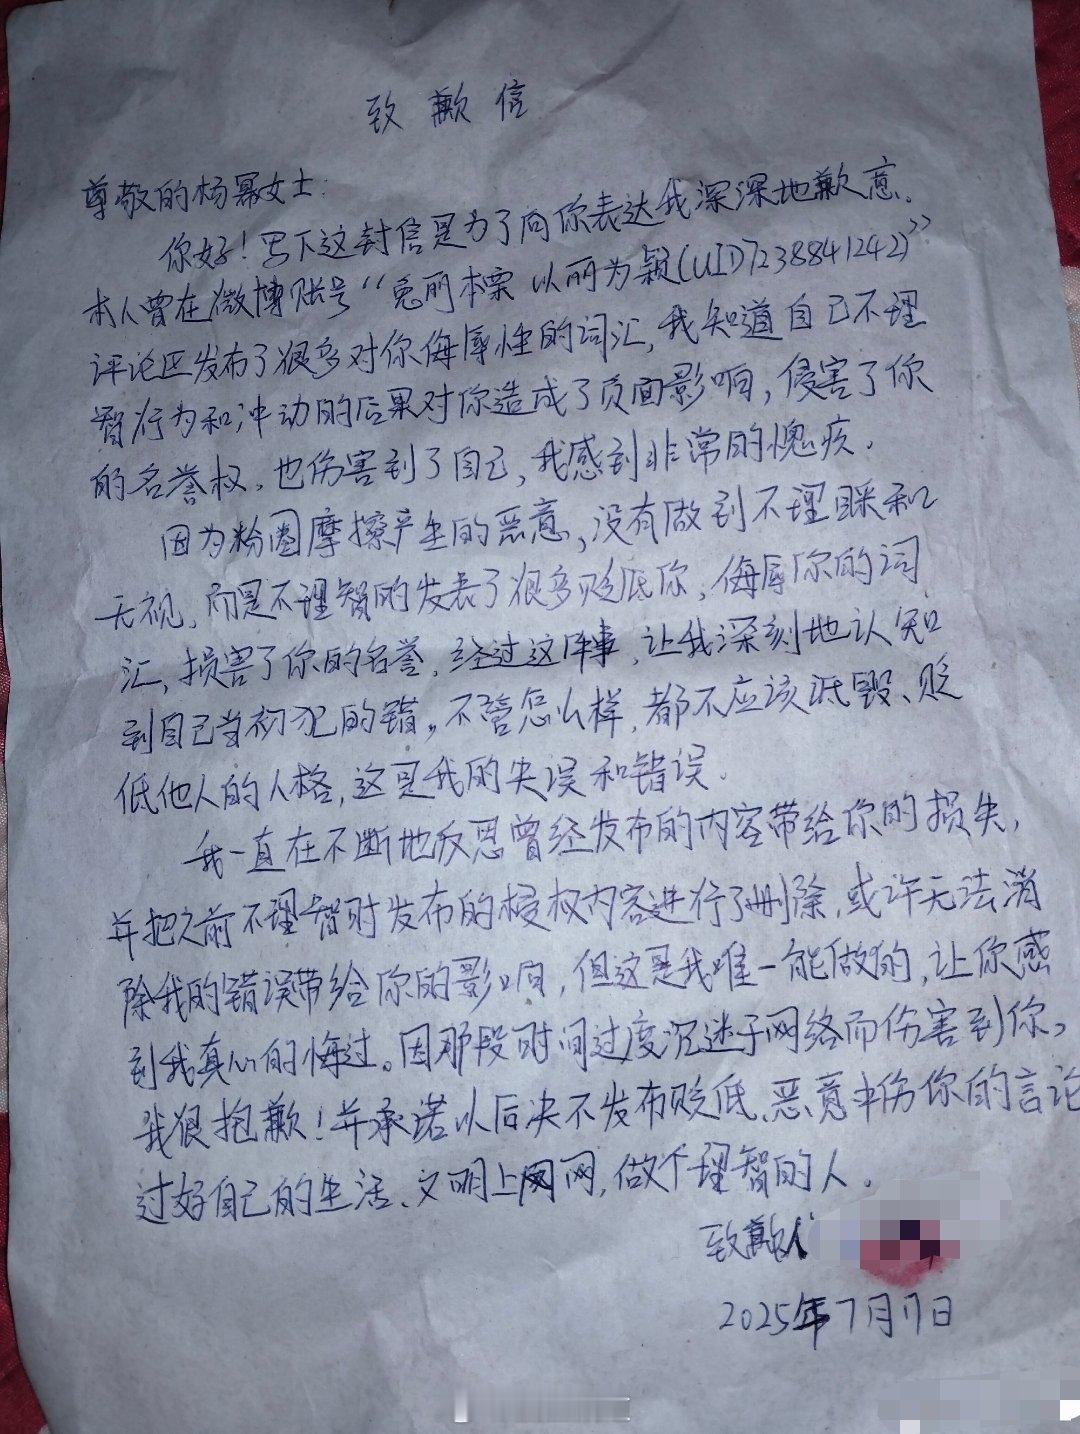 致歉信
尊敬的杨幂女士:
你好!写下这封信是为了向你表达我深深地歉意.
本人曾在微博账号“兔丽本票 以丽为颖(UID7238841242)”
评论区发布了很多对你侮辱性的词汇,我知道自己不理
智行为和冲动的后果对你造成了负面影响,侵害了你
的名誉权,也伤害到了自己,我感到非常的愧疚.
因为粉圈摩擦产生的恶意,没有做到不理睬和
无视,而是不理智的发表了很多贬低你,侮辱你的词
汇,损害了你的名誉,经过这件事,让我深刻地认知
到自己当初犯的错。不管怎么样,都不应该诋毁、贬
低他人的人格,这是我的失误和错误.
我一直在不断地反思曾经发布的内容带给你的损失,
并把之前不理智时发布的侵权内容进行了删除,或许无法消
除我的错误带给你的影响,但这是我唯一能做的,让你感
到我真心的悔过。因那段时间过度沉迷于网络而伤害到你,
我很抱歉!并承诺以后决不发布贬低、恶意中伤你的言论
过好自己的生活、文明上网,做个理智的人.
致歉人
2025年7月17日